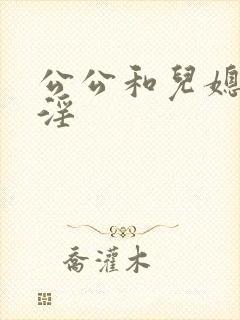 公公和兒媳
淫
喬灌木